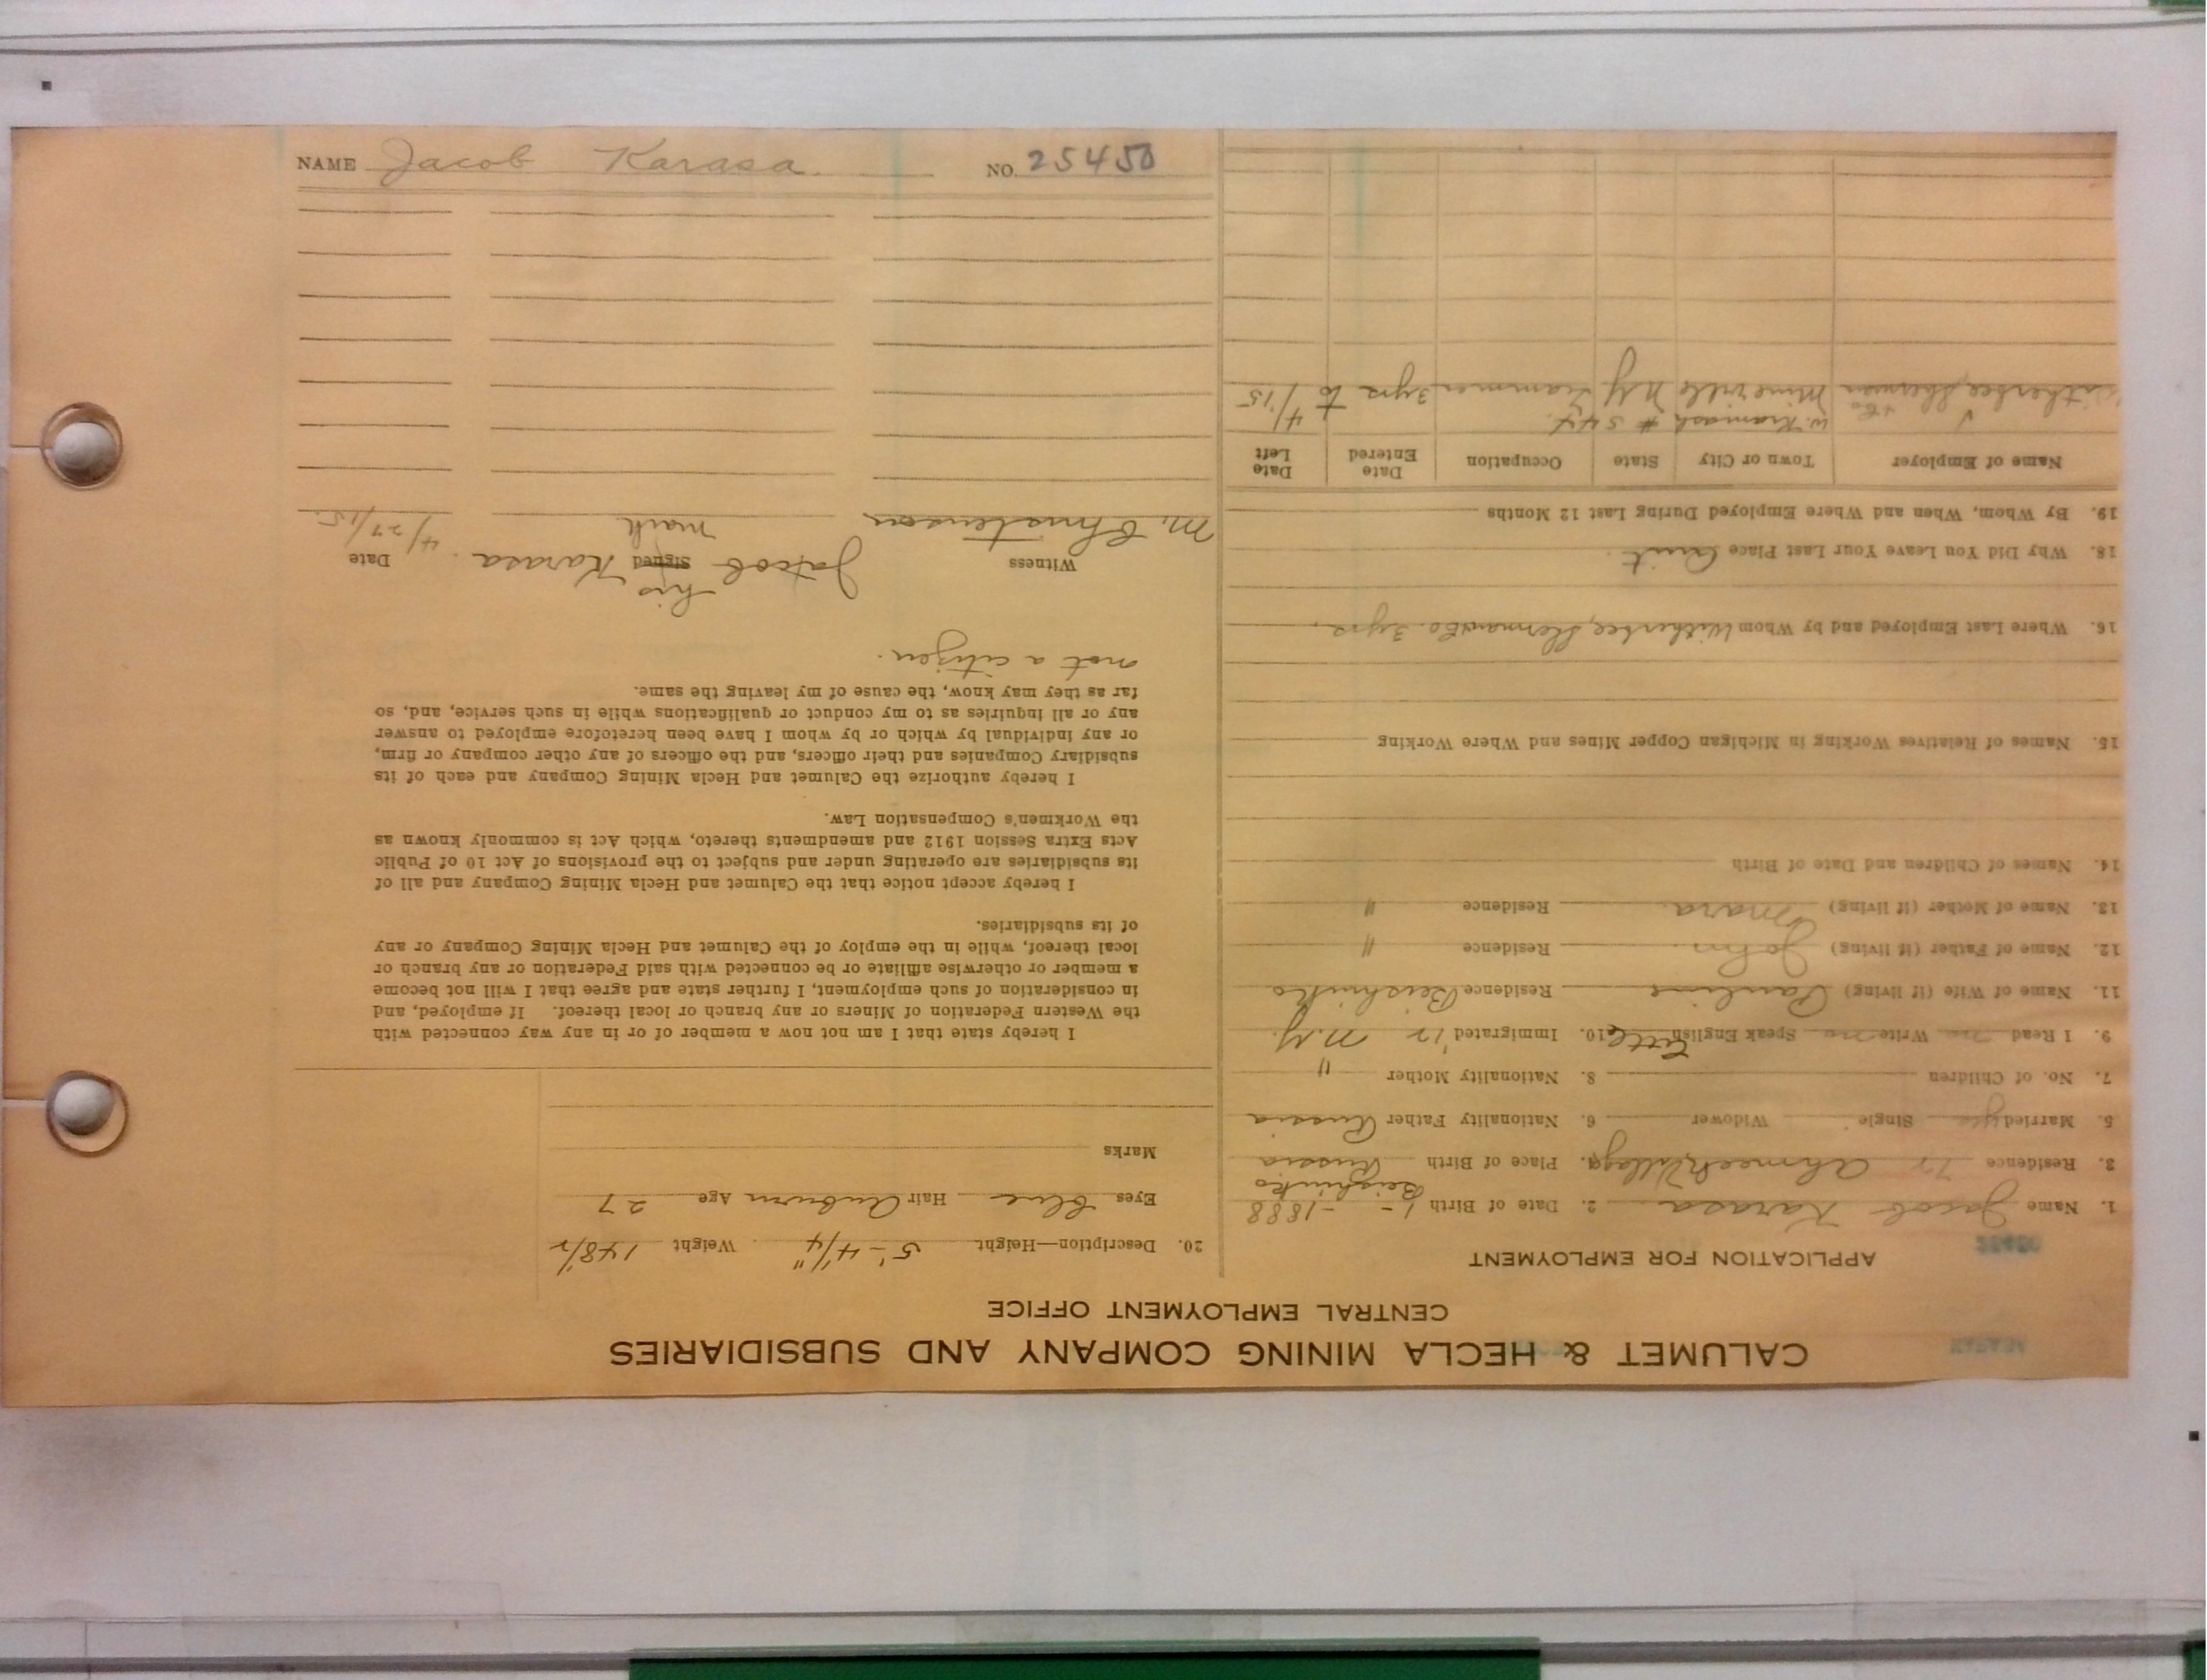 CALUMET & HECLA MINING COMPANY AND SUBSIDIARIES
CENTRAL EMPLOYMENT OFFICE
APPLICATION FOR EMPLOYMENT
1. Name Jacob Karasa 2. Date of Birth 1- -1888
3. Residence Ahmeek Village 4. Place of Birth Russia
5. Married yes Single Widower 6. Nationality Father Russia
7. No. of Children 8. Nationality Mother "
9. I Read no Write no Speak English little 10. Immigrated '12 N.Y.
11. Name of Wife (if living) Pauline Residence
12. Name of Father (if living) John Residence "
13. Name of Mother (if living) Mara Residence "
14. Names of Children and Date of Birth
15. Names of Relatives Working in Michigan Copper Mines and Where Working
16. Where Last Employed and by Whom Witherbee, Sherman & Co. 3 yrs.
18. Why Did You Leave Your Last Place Quit.
19. By Whom, When and Where Employed During Last 12 Months
Name of Employer Town or City State Occupation Date Entered Date Left
# 544
Witherbee, Sherman & Co Mineville N.Y. Trammer 3 yrs to 4/15
20. Description—Height 5'-4 1/4" Weight 148 1/2
Eyes blue Hair Auburn Age 27
Marks
I hereby state that I am not now a member of or in any way connected with
the Western Federation of Miners or any branch or local thereof. If employed, and
in consideration of such employment, I further state and agree that I will not become
a member or otherwise affiliate or be connected with said Federation or any branch or
local thereof, while in the employ of the Calumet and Hecla Mining Company or any
of its subsidiaries.
I hereby accept notice that the Calumet and Hecla Mining Company and all of
its subsidiaries are operating under and subject to the provisions of Act 10 of Public
Acts Extra Session 1912 and amendments thereto, which Act is commonly known as
the Workmen's Compensation Law.
I hereby authorize the Calumet and Hecla Mining Company and each of its
subsidiary Companies and their officers, and the officers of any other company or firm,
or any individual by which or by whom I have been heretofore employed to answer
any or all inquiries as to my conduct or qualifications while in such service, and, so
far as they may know, the cause of my leaving the same.
not a citizen.
Witness Signed Date
his
Jacob x Karasa.
mark
M. Christenson 4/27/15.
NAME Jacob Karasa. NO. 25450